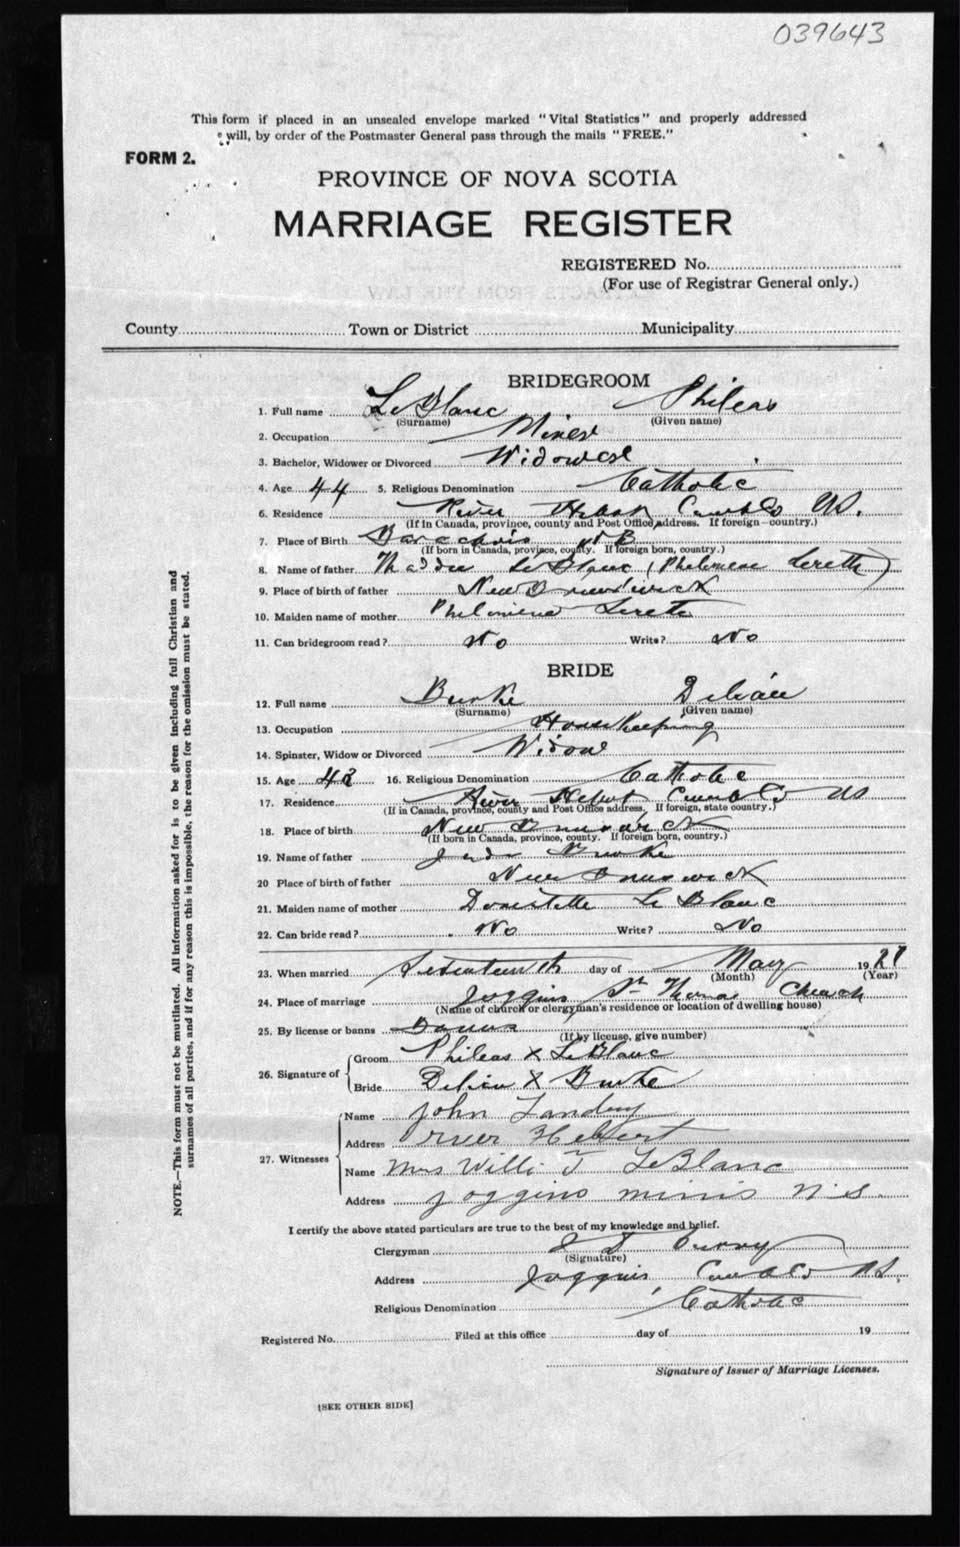 039643
This form if placed in an unsealed envelope marked "Vital Statistics" and properly addressed
will, by order of the Postmaster General pass through the mails "FREE."
FORM 2.
PROVINCE OF NOVA SCOTIA
MARRIAGE REGISTER
REGISTERED No.
(For use of Registrar General only.)
County Town or District Municipality
BRIDEGROOM
1. Full name LeBlanc Phileas
(Surname) (Given name)
2. Occupation Miner
3. Bachelor, Widower or Divorced Widower
4. Age 44 5. Religious Denomination Catholic
6. Residence River Hebert Cumb Co NS.
(If in Canada, province, county and Post Office address. If foreign—country.)
7. Place of Birth Barachois N B
(If born in Canada, province, county. If foreign born, country.)
8. Name of father Thaddee LeBlanc (Philomene
9. Place of birth of father New Brunswick
10. Maiden name of mother Philomene
11. Can bridegroom read? No Write? No
BRIDE
12. Full name Burke
(Surname) (Given name)
13. Occupation Housekeeping
14. Spinster, Widow or Divorced Widow
15. Age 16. Religious Denomination Catholic
17. Residence River Hebert Cumb Co NS
(If in Canada, province, county and Post Office address. If foreign, state country.)
18. Place of birth New Brunswick
(If born in Canada, province, county. If foreign born, country.)
19. Name of father Burke
20 Place of birth of father New Brunswick
21. Maiden name of mother LeBlanc
22. Can bride read? No Write? No
23. When married Seventeenth day of May 19
(Month) (Year)
24. Place of marriage Joggins St Thomas Church
(Name of church or clergyman's residence or location of dwelling house)
25. By license or banns Banns
(If by license, give number)
26. Signature of Groom Phileas X LeBlanc
Bride X Burke
27. Witnesses Name John Landry
Address River Hebert
Name Mrs Willi T LeBlanc
Address Joggins mines N.S.
I certify the above stated particulars are true to the best of my knowledge and belief.
Clergyman
(Signature)
Address Joggins, Cumb Co NS.
Religious Denomination Catholic
Registered No. Filed at this office day of 19
Signature of Issuer of Marriage Licenses.
[SEE OTHER SIDE]
NOTE.—This form must not be mutilated. All information asked for is to be given including full Christian and
surnames of all parties, and if for any reason this is impossible, the reason for the omission must be stated.